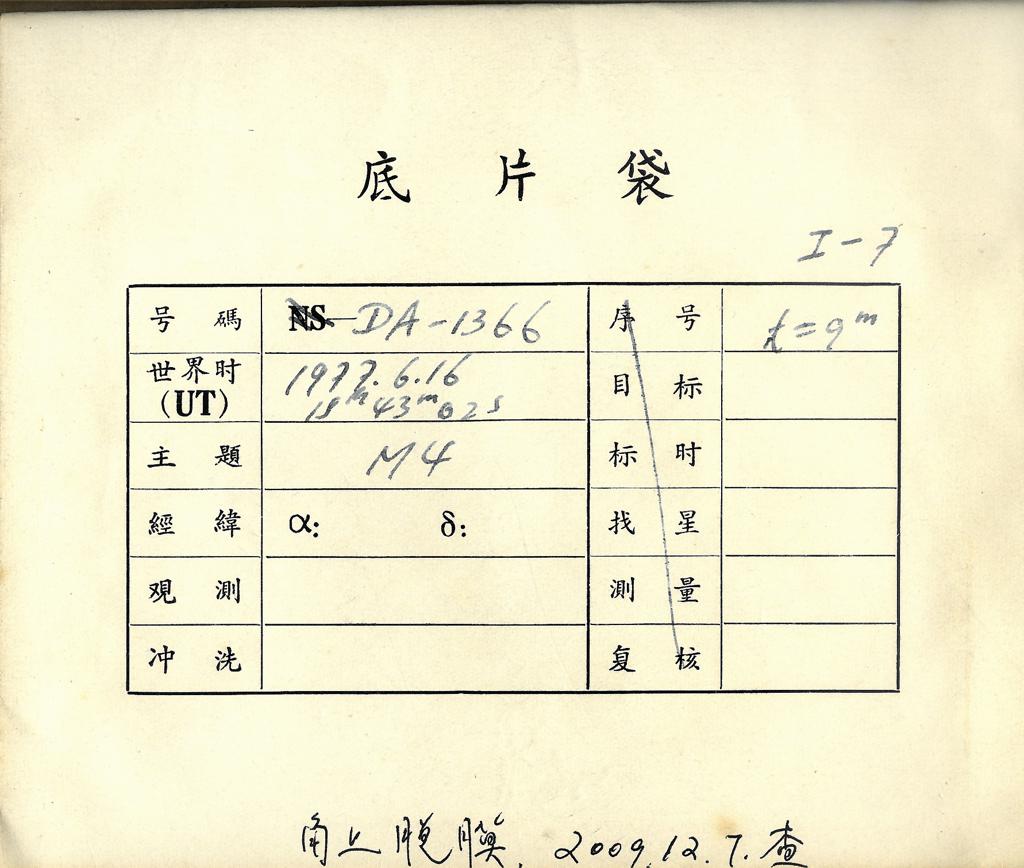 底 片 袋
I-7
号 碼 NS-DA-1366 序 号 t=9ᵐ
世界时 (UT) 1977.6.16 目 标
18ʰ43ᵐ02ˢ
主 題 M4 标 时
經 緯 α: δ: 找 星
观 測 測 量
冲 洗 复 核
角上脱膜. 2009.12.7.查